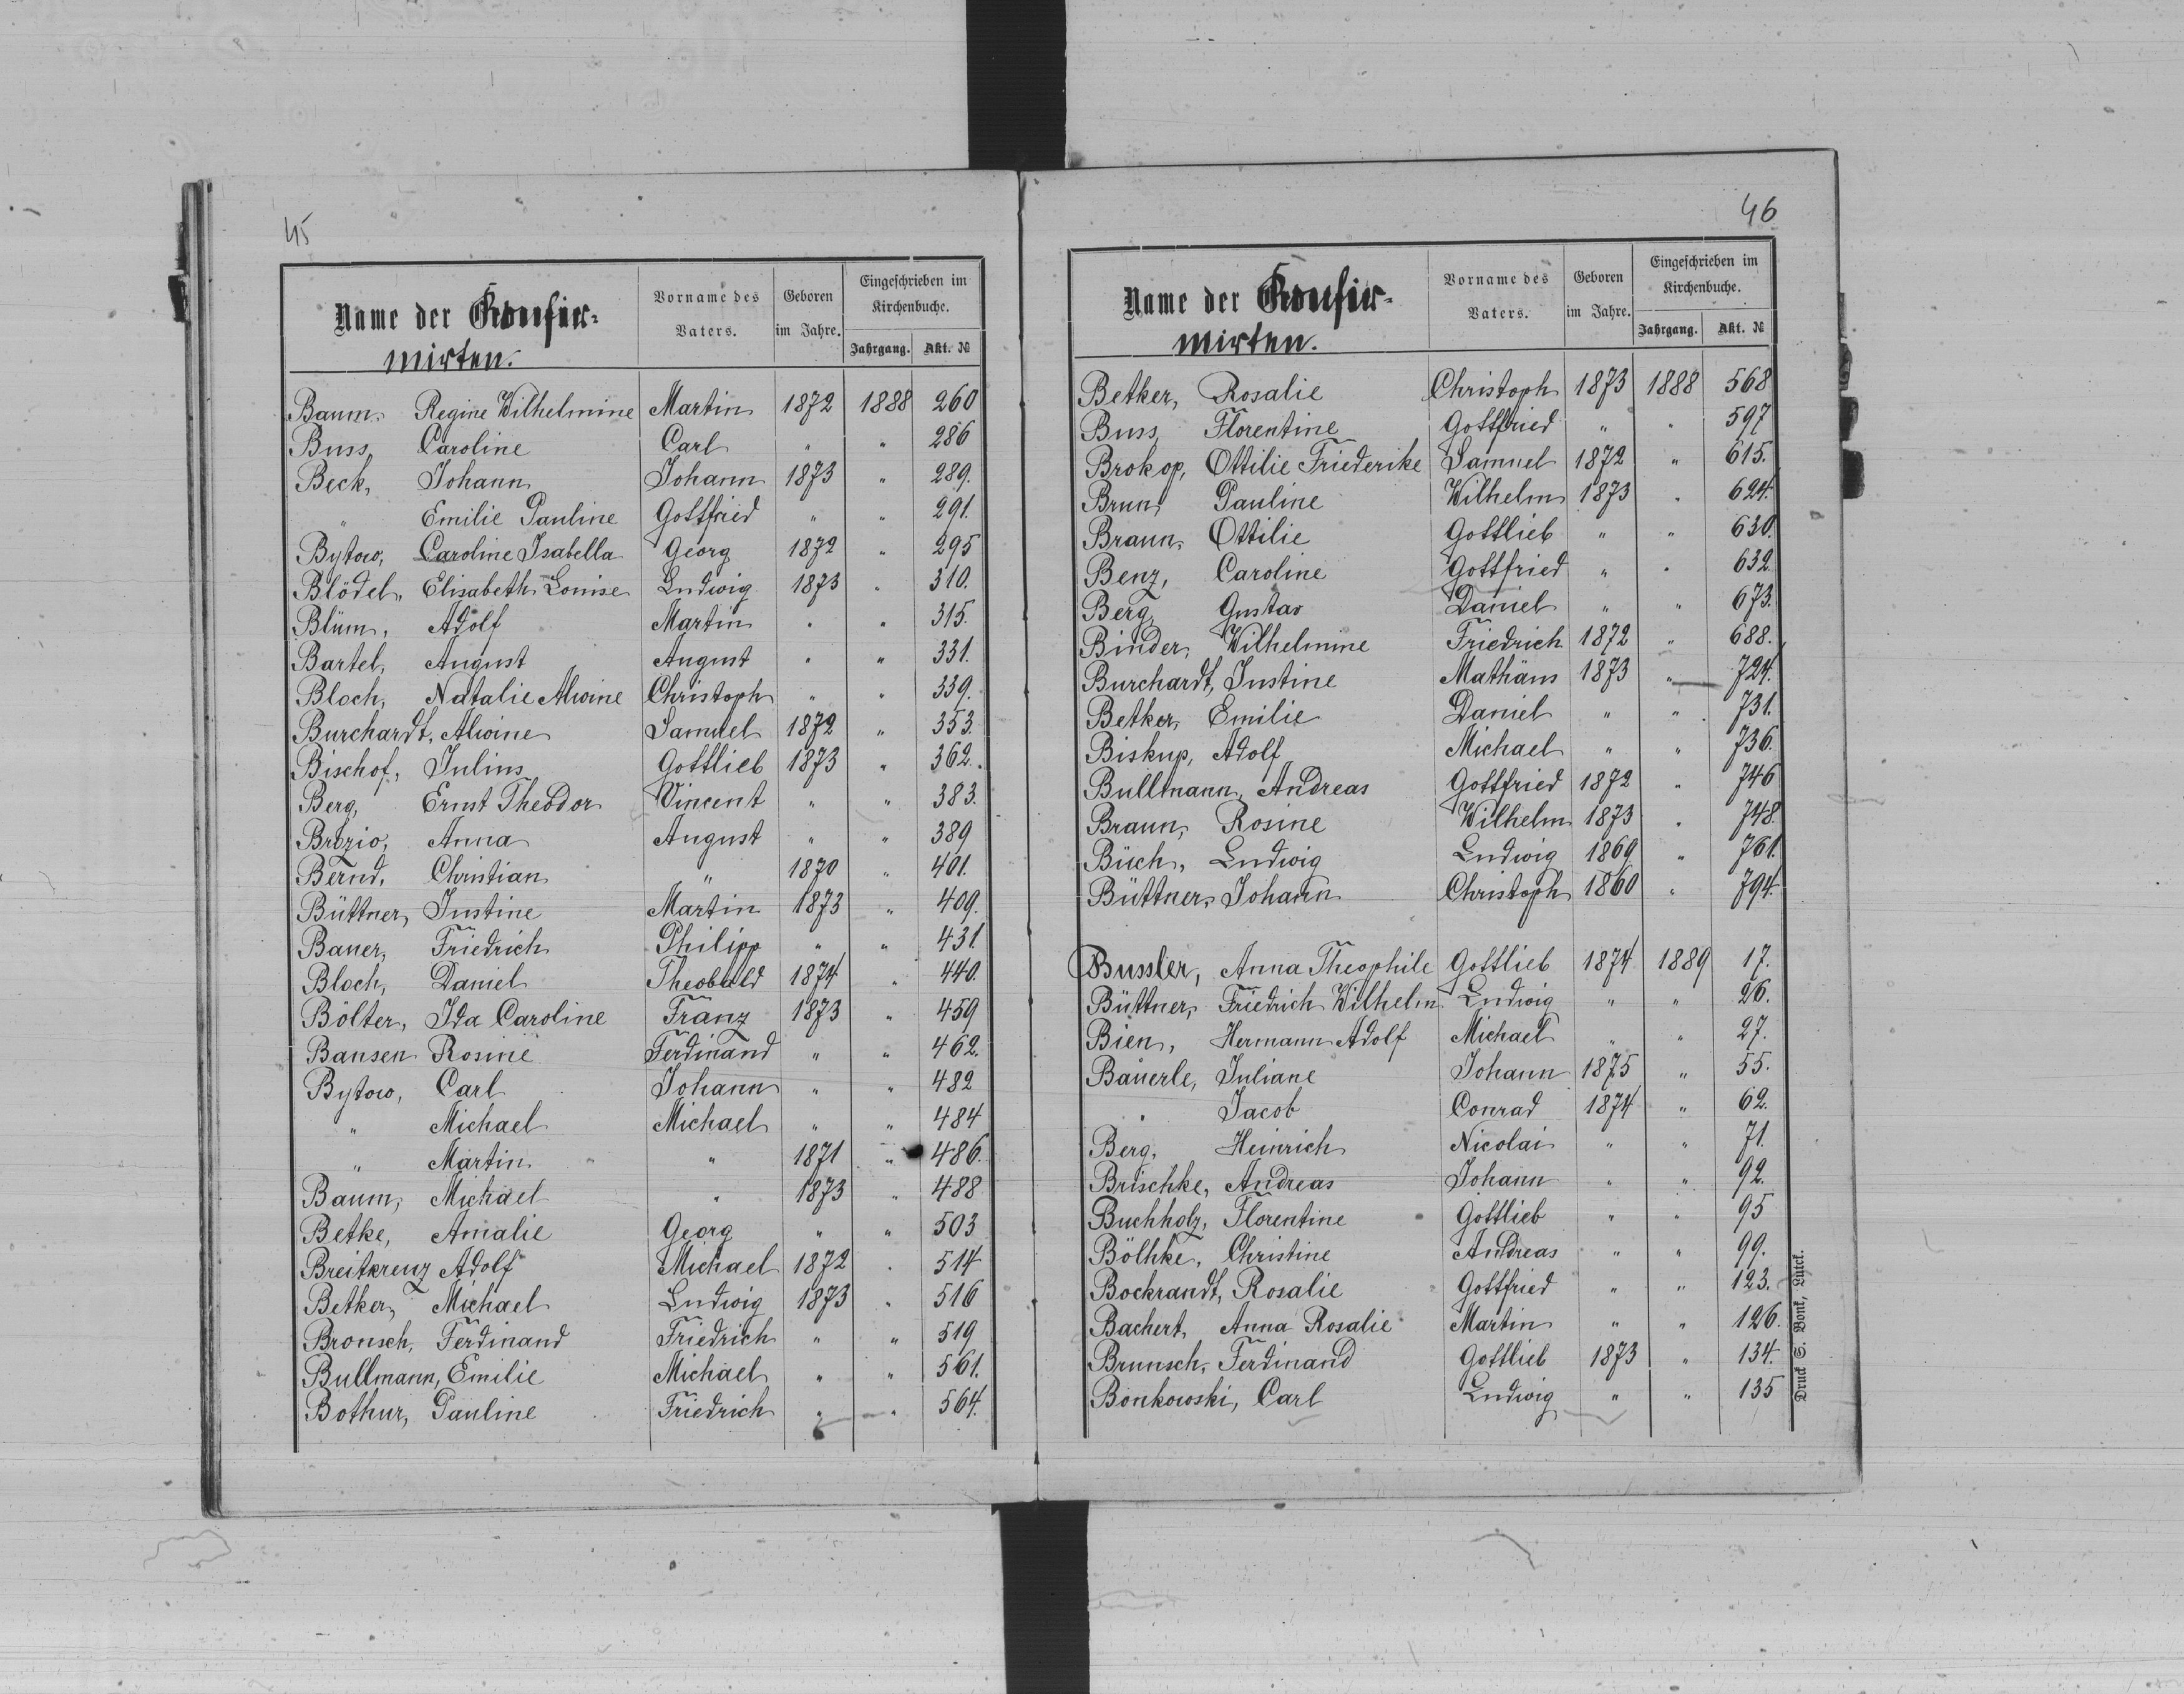 45
Name der Konfir-
mirten.
Vorname des
Vaters.
Geboren
im Jahre.
Eingeschrieben im
Kirchenbuche.
Jahrgang. Akt. №
Baum, Regine Wilhelmine Martin 1872 1888 260
Buss, Caroline Carl " " 286
Beck, Johann Johann 1873 " 289.
" Emilie Pauline Gottfried " " 291.
Bytow, Caroline Isabella Georg 1872 " 295
Blödel, Elisabeth Louise Ludwig 1873 " 310.
Blüm, Adolf Martin " " 315.
Bartel, August August " " 331.
Bloch, Natalie Alwine Christoph " " 339.
Burchardt, Alwine Samuel 1872 " 353.
Bischof, Julius Gottlieb 1873 " 362.
Berg, Ernst Theodor Vincent " " 383.
Brozio, Anna August " " 389
Bernd, Christian " 1870 " 401.
Büttner, Justine Martin 1873 " 409.
Bauer, Friedrich Philipp " " 431
Bloch, Daniel Theobald 1874 " 440.
Bölter, Ida Caroline Franz 1873 " 459
Bansen Rosine Ferdinand " " 462.
Bytow, Carl Johann " " 482
" Michael Michael " " 484
" Martin " 1871 " 486.
Baum, Michael " 1873 " 488
Betke, Amalie Georg " " 503
Breitkreuz Adolf Michael 1872 " 514
Betker, Michael Ludwig 1873 " 516
Bronsch, Ferdinand Friedrich " " 519
Bullmann, Emilie Michael " " 561.
Bothur, Pauline Friedrich " " 564.
46
Name der Konfir-
mirten.
Vorname des
Vaters.
Geboren
im Jahre.
Eingeschrieben im
Kirchenbuche.
Jahrgang. Akt. №
Betker, Rosalie Christoph 1873 1888 568
Buss, Florentine Gottfried " " 597
Brokop, Ottilie Friederike Samuel 1872 " 615.
Brun, Pauline Wilhelm 1873 " 624.
Braun, Ottilie Gottlieb " " 630.
Benz, Caroline Gottfried " " 632
Berg, Gustav Daniel " " 673.
Binder, Wilhelmine Friedrich 1872 " 688.
Burchardt, Justine Mathäus 1873 " 724.
Betker, Emilie Daniel " " 731.
Biskup, Adolf Michael " " 736.
Bullmann, Andreas Gottfried 1872 " 746
Braun, Rosine Wilhelm 1873 " 748.
Büch, Ludwig Ludwig 1869 " 761.
Büttner, Johann Christoph 1860 " 794.
Bussler, Anna Theophile Gottlieb 1874 1889 17.
Büttner, Friedrich Wilhelm Ludwig " " 26.
Bien, Hermann Adolf Michael " " 27.
Bäuerle, Juliane Johann 1875 " 55.
" Jacob Conrad 1874 " 62.
Berg, Heinrich Nicolai " " 71.
Brischke, Andreas Johann " " 92.
Buchholz, Florentine Gottlieb " " 95
Bölhke, Christine Andreas " " 99.
Bockrandt, Rosalie Gottfried " " 123.
Bachert, Anna Rosalie Martin " " 126.
Brunsch, Ferdinand Gottlieb 1873 " 134.
Bonkowski, Carl Ludwig " " 135
Druck S. Bonk, Luck.